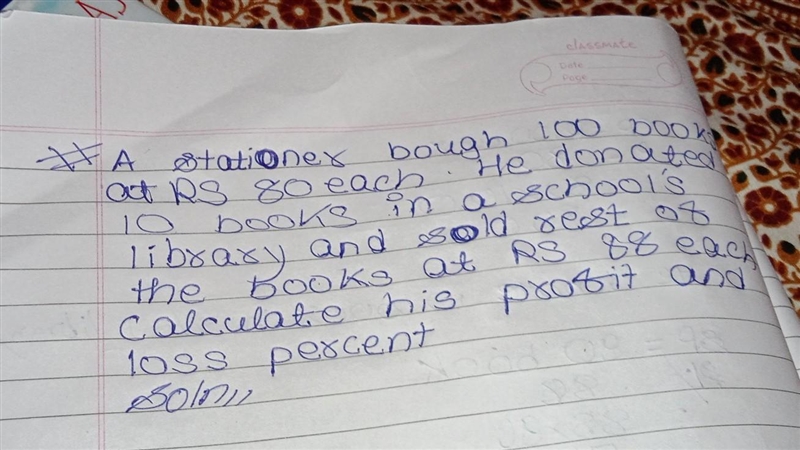 classmate
Date
Page
A stationer bough 100 books
at RS 80 each. He donated
10 books in a school's
library and sold rest of
the books at RS 88 each
calculate his profit and
loss percent
Soln,,